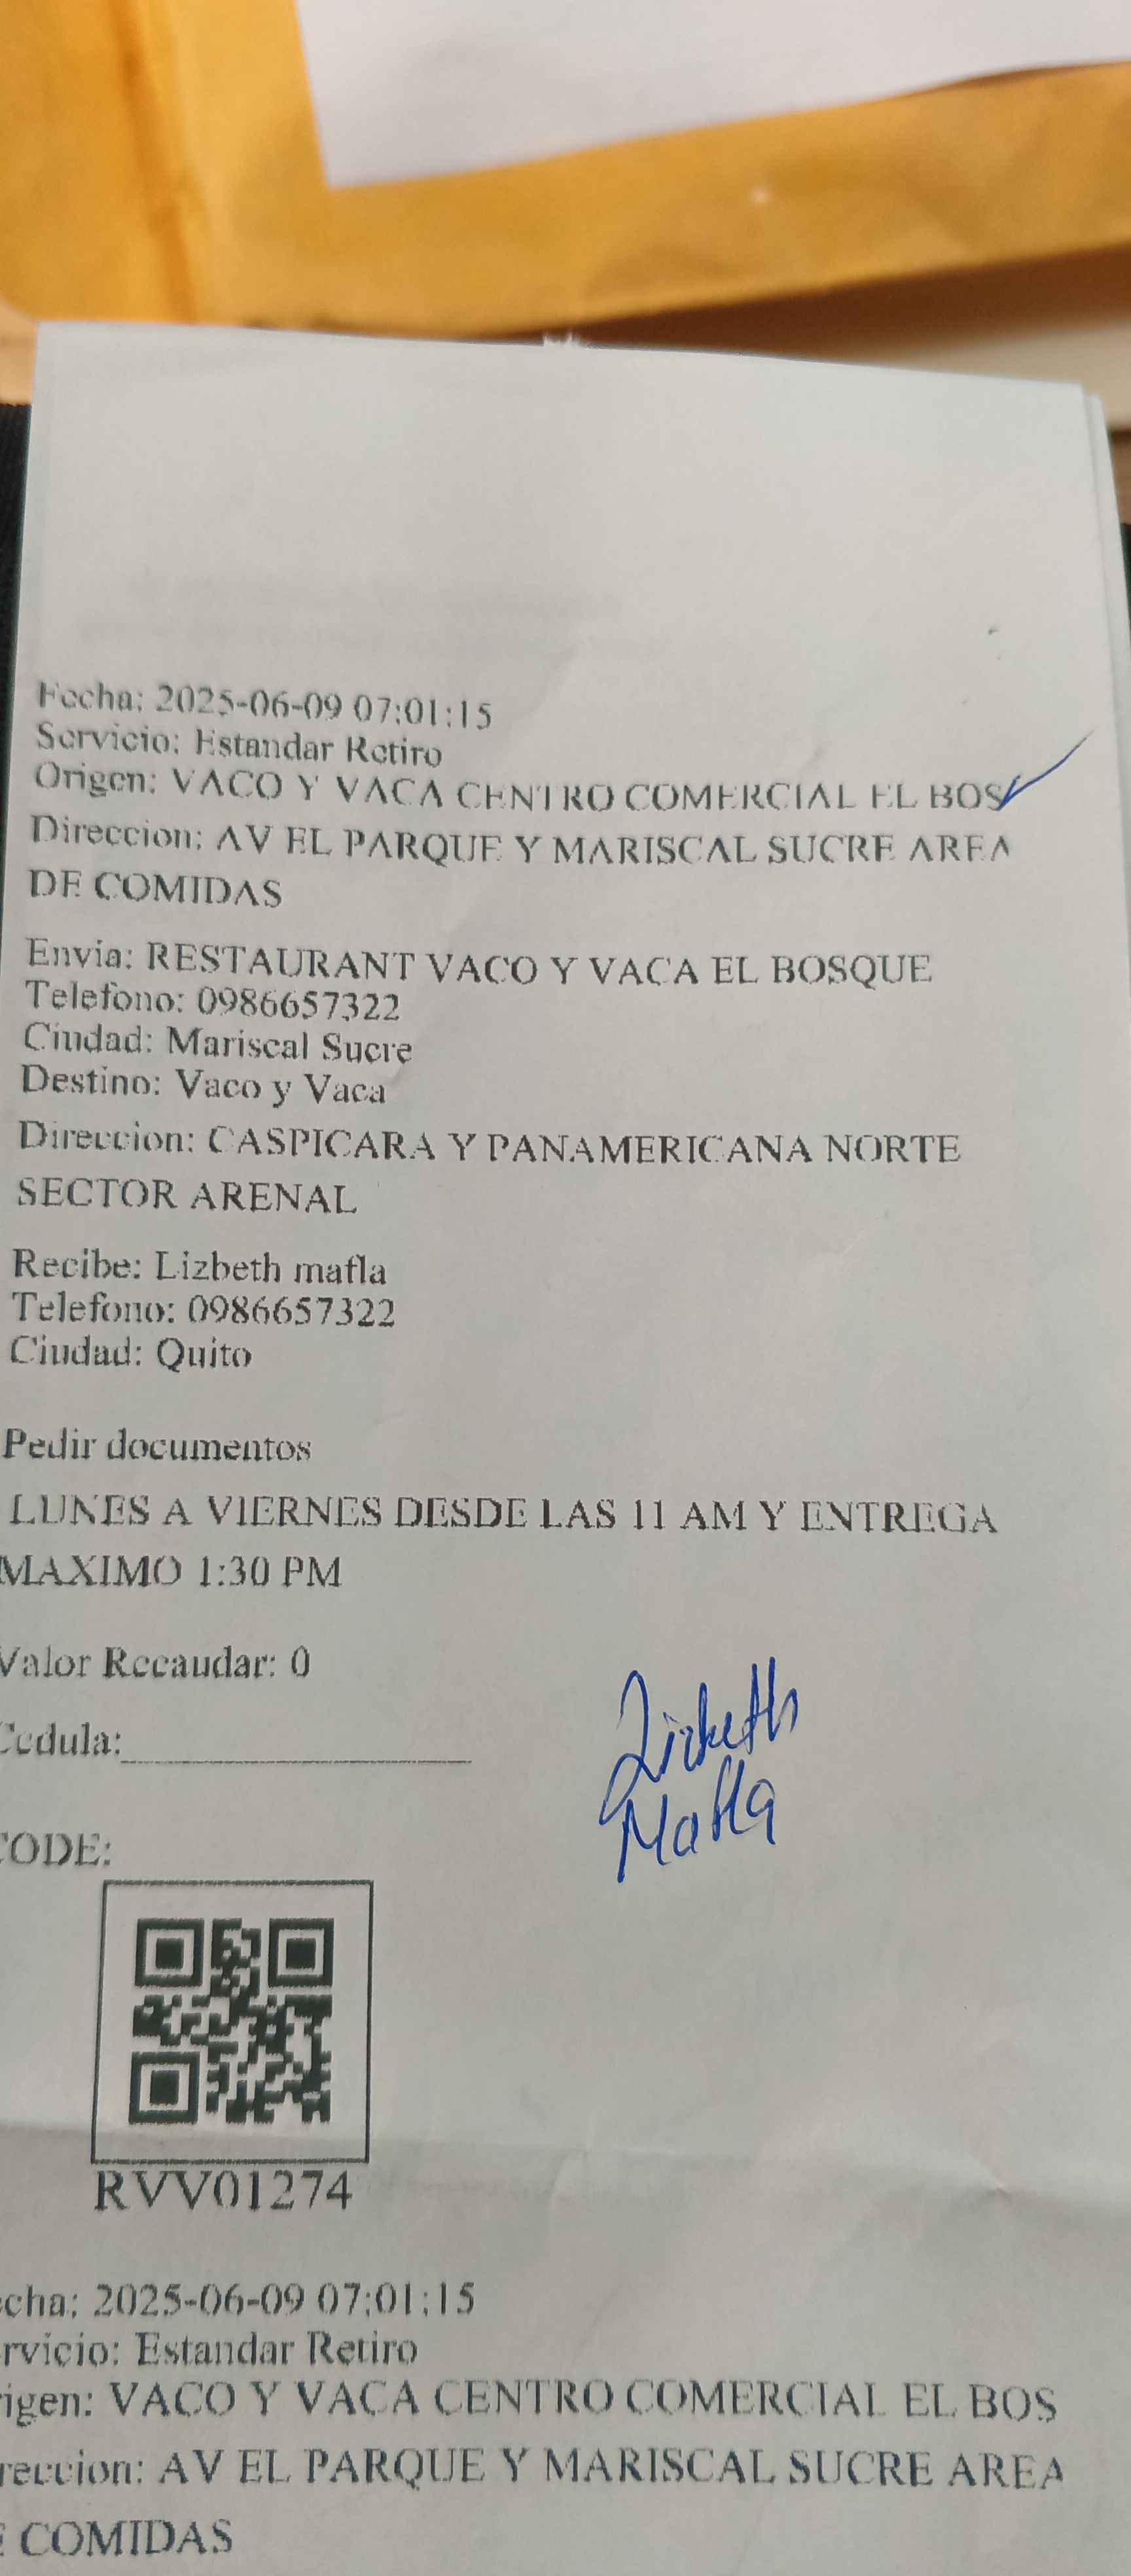 Fecha: 2025-06-09 07:01:15
Servicio: Estandar Retiro
Origen: VACO Y VACA CENTRO COMERCIAL EL BOS
Direccion: AV EL PARQUE Y MARISCAL SUCRE AREA
DE COMIDAS
Envia: RESTAURANT VACO Y VACA EL BOSQUE
Telefono: 0986657322
Ciudad: Mariscal Sucre
Destino: Vaco y Vaca
Direccion: CASPICARA Y PANAMERICANA NORTE
SECTOR ARENAL
Recibe: Lizbeth mafla
Telefono: 0986657322
Ciudad: Quito
Pedir documentos
LUNES A VIERNES DESDE LAS 11 AM Y ENTREGA
MAXIMO 1:30 PM
Valor Recaudar: 0
Cedula:
Lizbeth
Mafla
CODE:
RVV01274
cha: 2025-06-09 07:01:15
rvicio: Estandar Retiro
igen: VACO Y VACA CENTRO COMERCIAL EL BOS
reccion: AV EL PARQUE Y MARISCAL SUCRE AREA
E COMIDAS